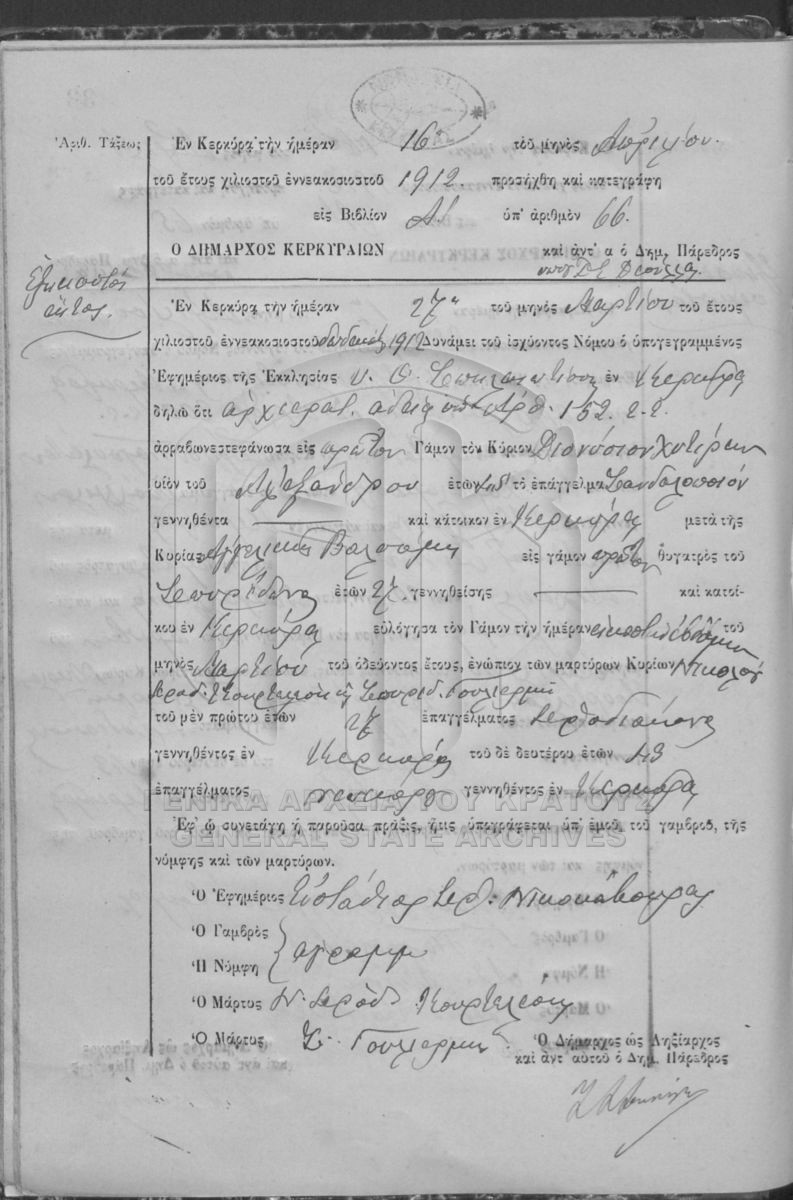 Ἀριθ. Τάξεως
Ἑξηκοστός
ἕκτος.
Ἐν Κερκύρᾳ τὴν ἡμέραν 16ῃ τοῦ μηνὸς Ἀπριλίου
τοῦ ἔτους χιλιοστοῦ ἐννεακοσιοστοῦ 1912. προσήχθη καὶ κατεγράφη
εἰς Βιβλίον Α! ὑπ' ἀριθμὸν 66.
Ο ΔΗΜΑΡΧΟΣ ΚΕΡΚΥΡΑΙΩΝ καὶ ἀντ' α ὁ Δημ. Πάρεδρος
Ἐν Κερκύρᾳ τὴν ἡμέραν 27η τοῦ μηνὸς Μαρτίου τοῦ ἔτους
χιλιοστοῦ ἐννεακοσιοστοῦ 1912 Δυνάμει τοῦ ἰσχύοντος Νόμου ὁ ὑπογεγραμμένος
Ἐφημέριος τῆς Ἐκκλησίας ἐν Κερκύρᾳ
δηλῶ ὅτι ἀρχιερατ. ἀδείᾳ ὑπ' Ἀρθ. 152. ἐ. ἔ.
ἀρραβωνεστεφάνωσα εἰς πρῶτον Γάμον τὸν Κύριον Διονύσιον
υἱὸν τοῦ Ἀλεξάνδρου ἐτῶν τὸ ἐπάγγελμα
γεννηθέντα καὶ κάτοικον ἐν Κερκύρᾳ μετὰ τῆς
Κυρίας Ἀγγελικῆς Βαλσάμη εἰς γάμον πρῶτον θυγατρὸς τοῦ
Σπυρίδωνος ἐτῶν 27. γεννηθείσης καὶ κατοί-
κου ἐν Κερκύρᾳ εὐλόγησα τὸν Γάμον τὴν ἡμέραν εἰκοστὴν ἑβδόμην τοῦ
μηνὸς Μαρτίου τοῦ ὁδεύοντος ἔτους, ἐνώπιον τῶν μαρτύρων Κυρίων Νικολάου
Ἱεροδ. Κουρτελέση κ Σπυρίδ. Γουλιερμῆ
τοῦ μὲν πρώτου ἐτῶν 27 ἐπαγγέλματος Ἱεροδιακόνου
γεννηθέντος ἐν Κερκύρᾳ τοῦ δὲ δευτέρου ἐτῶν 43
ἐπαγγέλματος νεωκόρου γεννηθέντος ἐν Κερκύρᾳ
ΓΕΝΙΚΑ ΑΡΧΕΙΑ ΤΟΥ ΚΡΑΤΟΥΣ
Ἐφ' ᾧ συνετάγη ἡ παροῦσα πρᾶξις, ἥτις ὑπογράφεται ὑπ' ἐμοῦ, τοῦ γαμβροῦ, τῆς
GENERAL STATE ARCHIVES
νύμφης καὶ τῶν μαρτύρων.
Ὁ Ἐφημέριος Εὐστάθιος Ἱερ.
Ὁ Γαμβρὸς
ἀγράμμ
Ἡ Νύμφη
Ὁ Μάρτυς Ν. Ἱεροδ. Κουρτελέσης
Ὁ Μάρτυς Σ. Γουλιερμῆς
Ὁ Δήμαρχος ὡς Ληξίαρχος
καὶ ἀντ' αὐτοῦ ὁ Δημ. Πάρεδρος